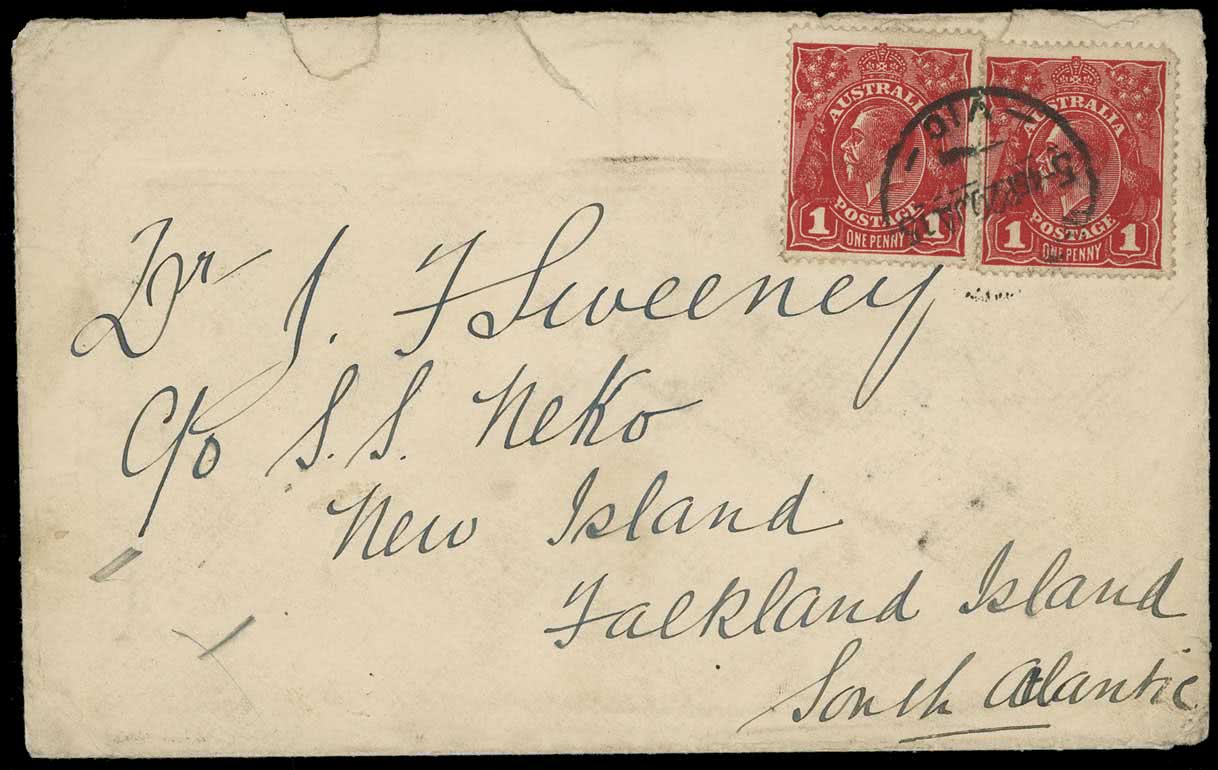 AUSTRALIA
POSTAGE
1 1
ONE PENNY
AUSTRALIA
POSTAGE
1 1
ONE PENNY
Dr J. F Sweeney
C/o S.S. Neko
New Island
Falkland Island
South Atlantic